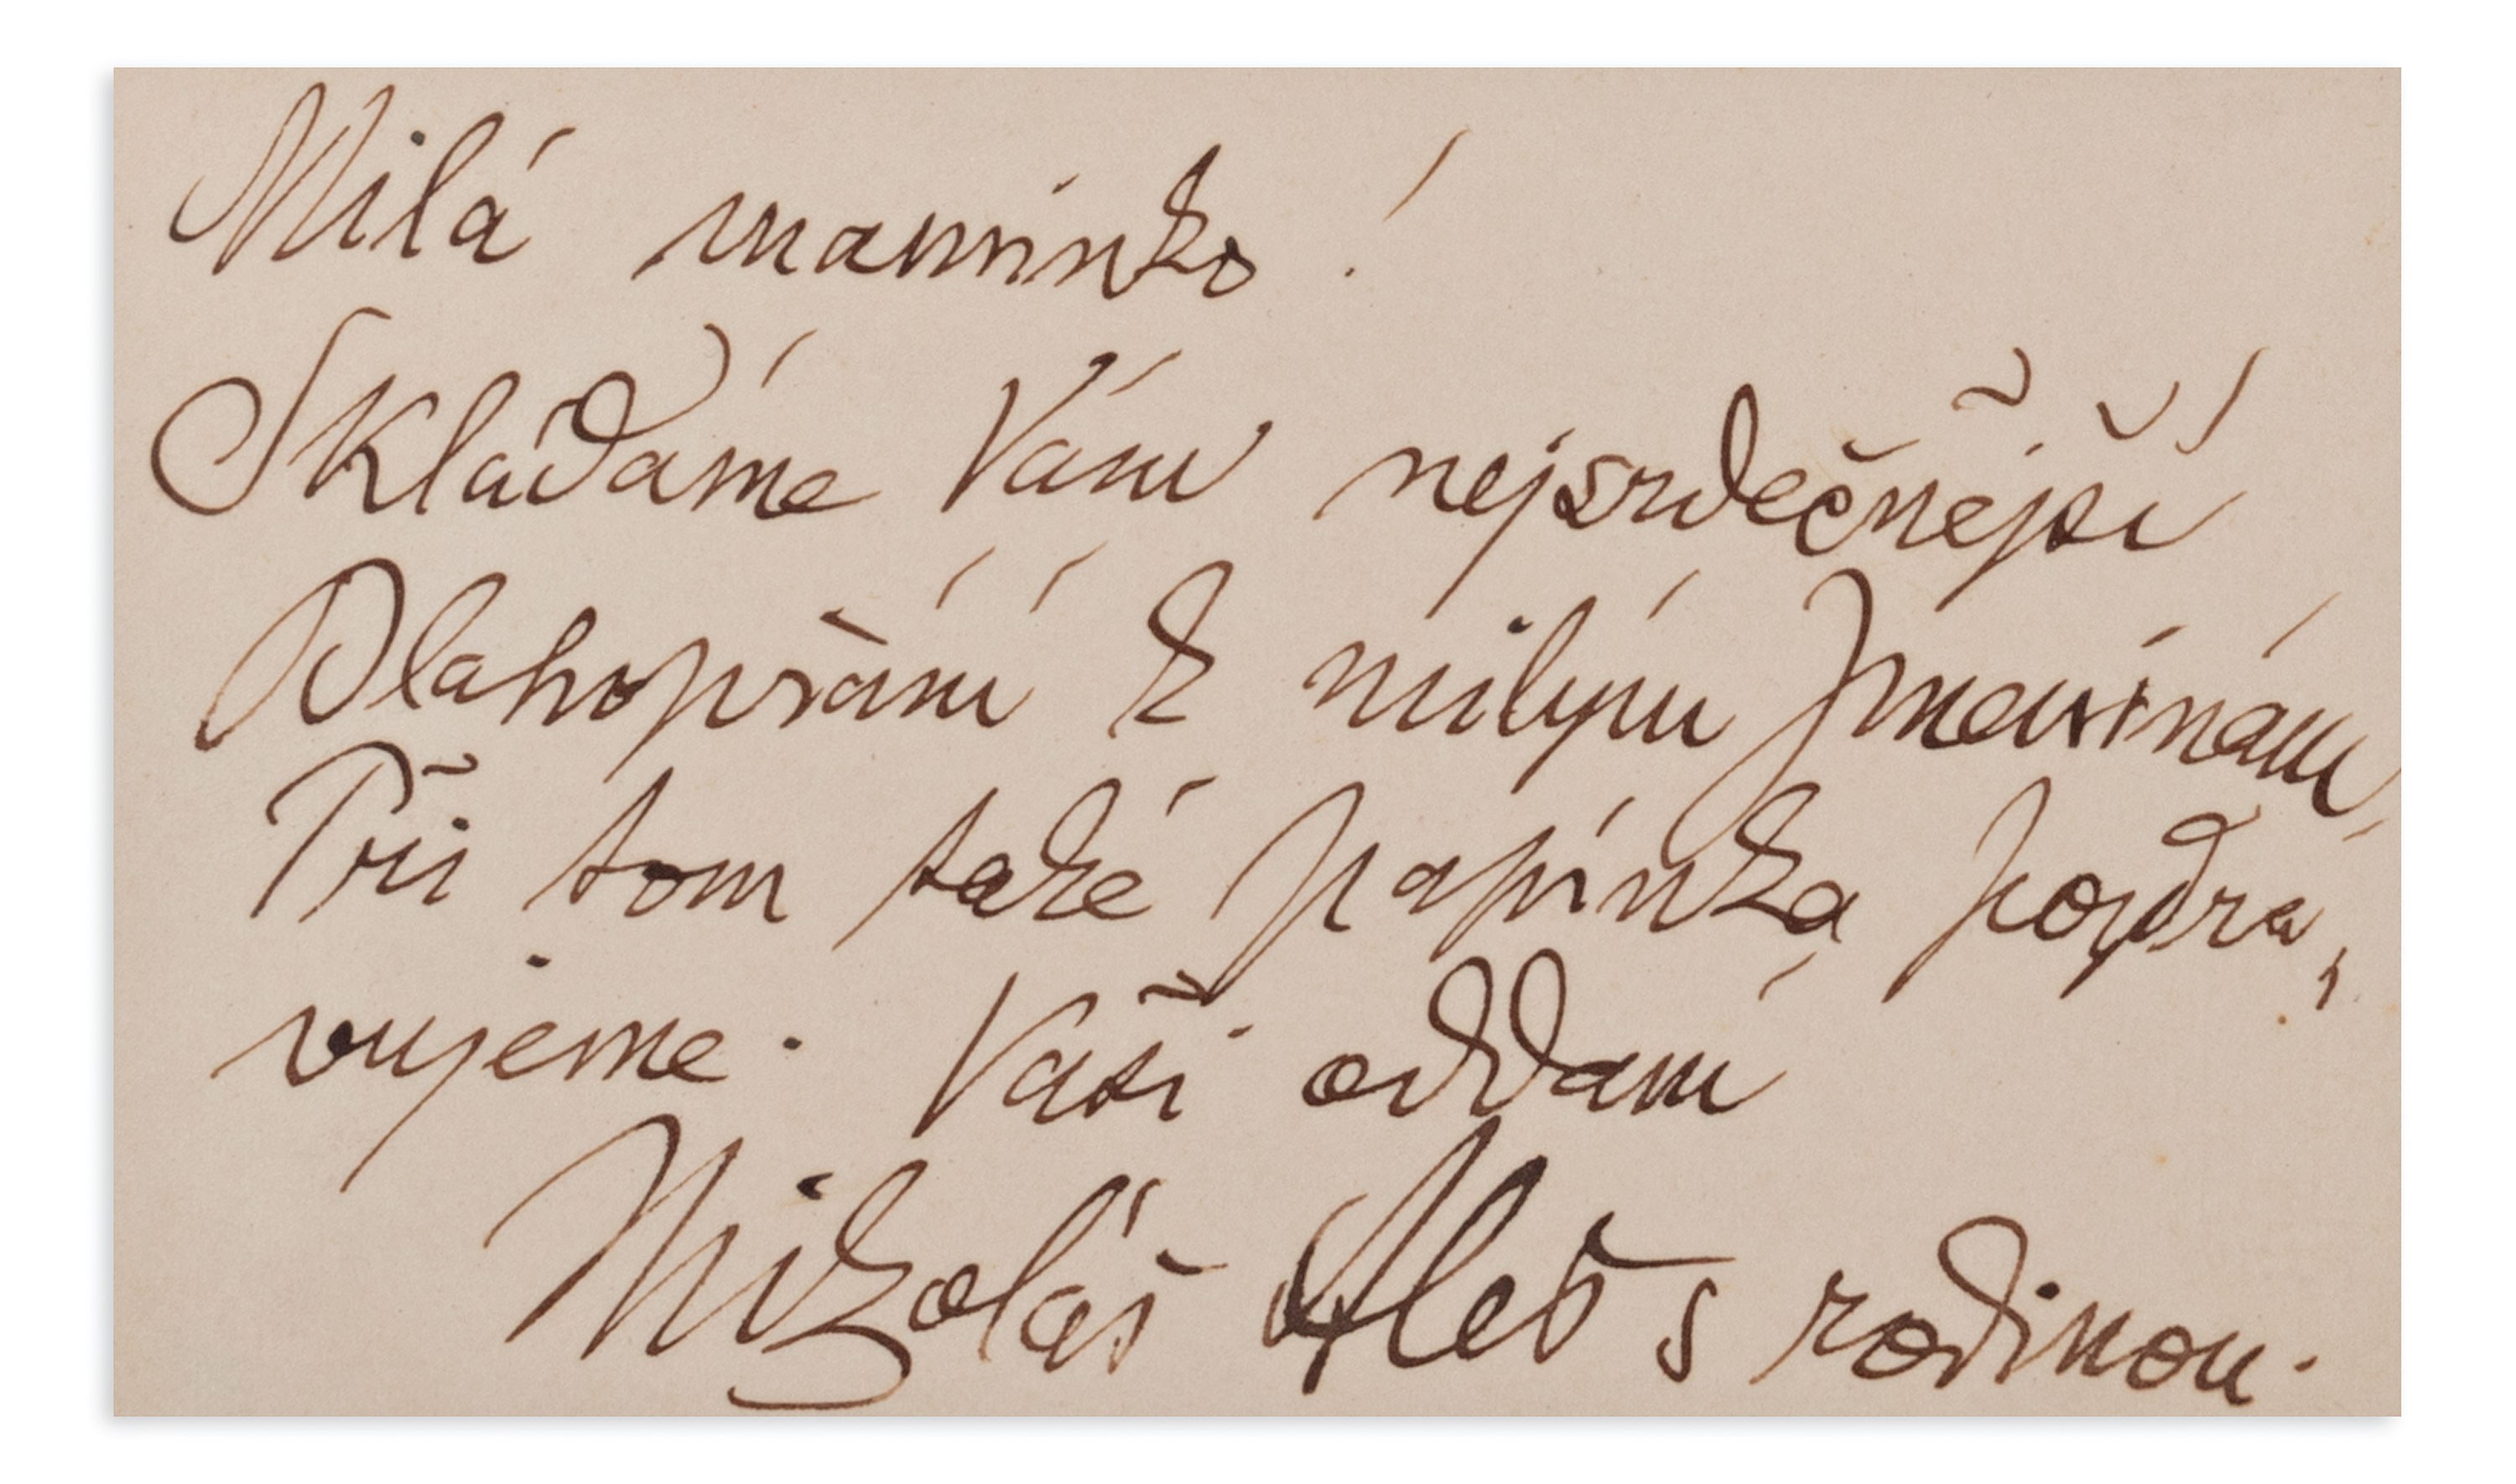 Milá maminko!
Skládáme Vám nejsrdečnější
Blahopřání k milým Jmeninám,
Při tom také papínka pozdra,
vujeme. Vaši oddaní
Mikoláš Aleš s rodinou.